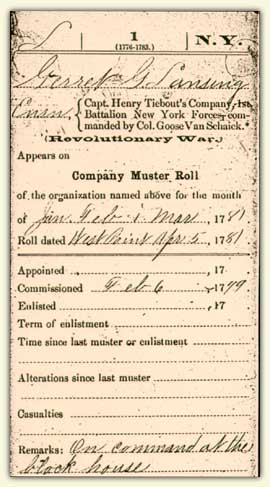 L 1 N.Y.
(1776-1783.)
Gerret G. Lansing
Ensn { Capt. Henry Tiebout's Company, 1st
Battalion New York Forces, com-
manded by Col. Goose Van Schaick.*
(Revolutionary War.)
Appears on
Company Muster Roll
of the organization named above for the month
of Jan Feb & Mar, 1781
Roll dated West Point Apr 5, 1781.
Appointed , 17
Commissioned Feb 6, 17
Enlisted , 17
Term of enlistment
Time since last muster or enlistment
Alterations since last muster
Casualties
Remarks: On command at the
block house